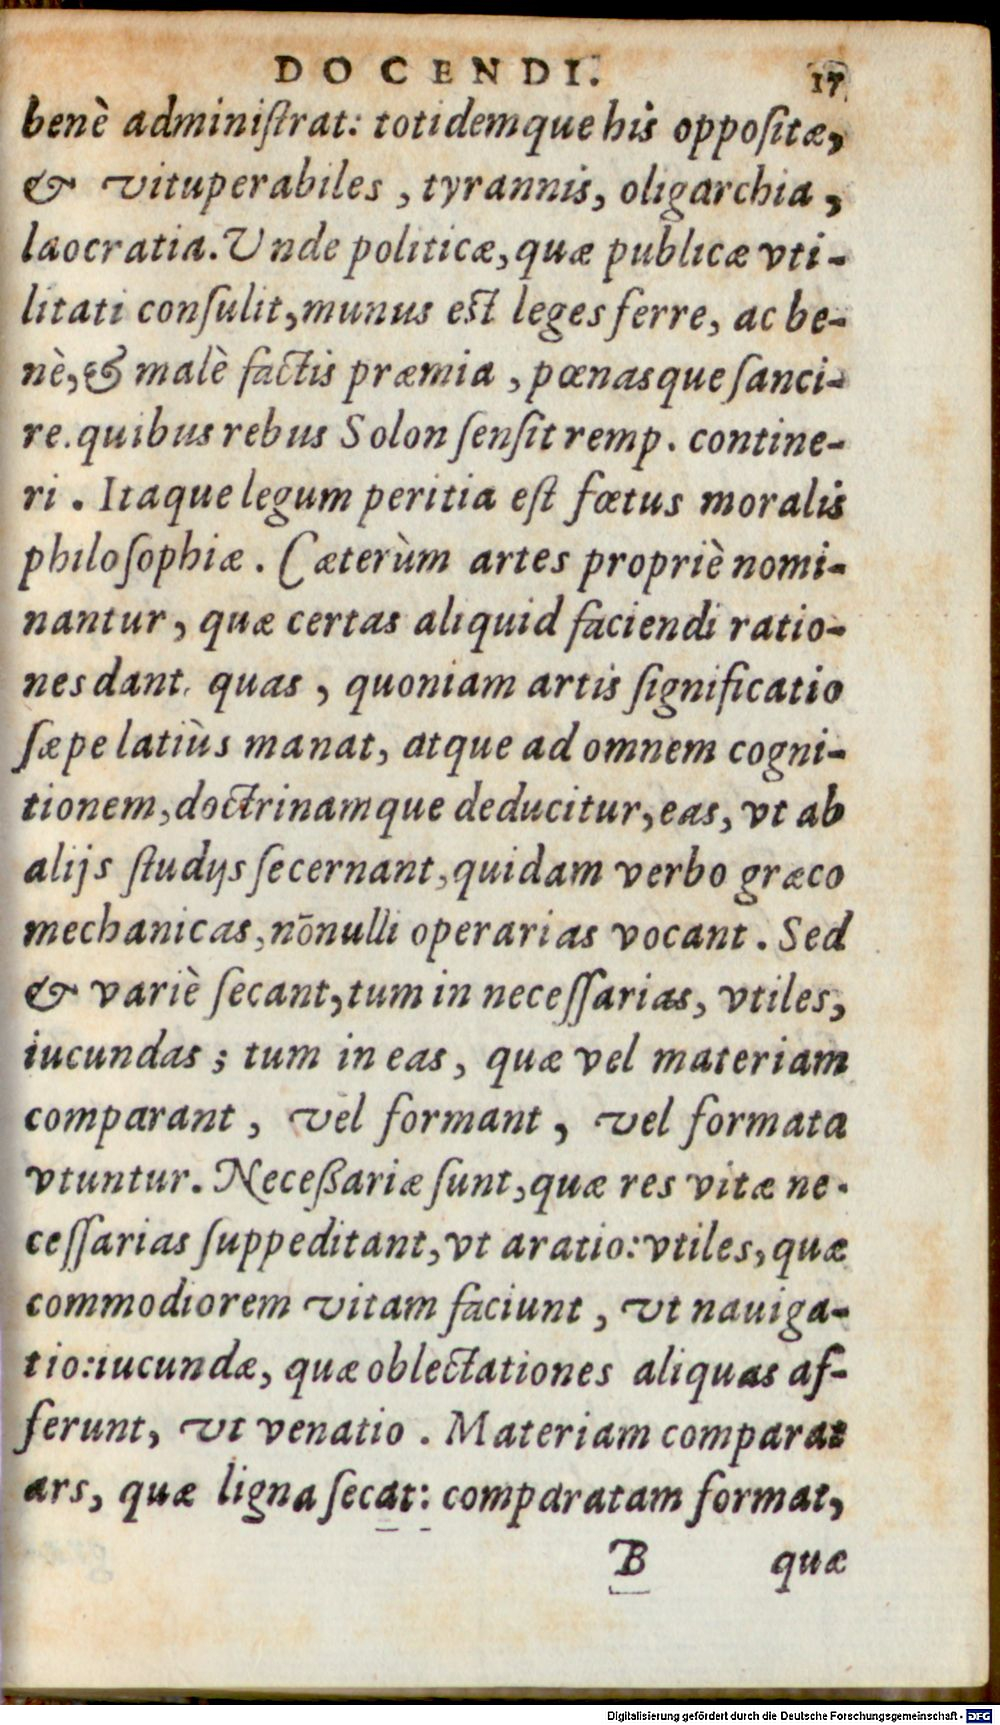 DOCENDI. 17
benè adminiſtrat: totidemque his oppoſitæ,
& vituperabiles, tyrannis, oligarchia,
laocratia. Unde politicæ, quæ publicæ vti-
litati conſulit, munus eſt leges ferre, ac be-
nè, & malè factis præmia, pœnasque ſanci-
re. quibus rebus Solon ſenſit remp. contine-
ri. Itaque legum peritia eſt fœtus moralis
philoſophiæ. Cæterùm artes propriè nomi-
nantur, quæ certas aliquid faciendi ratio-
nes dant. quas, quoniam artis ſignificatio
ſæpe latiùs manat, atque ad omnem cogni-
tionem, doctrinamque deducitur, eas, vt ab
alijs ſtudijs ſecernant, quidam verbo græco
mechanicas, nōnulli operarias vocant. Sed
& variè ſecant, tum in neceſſarias, vtiles,
iucundas; tum in eas, quæ vel materiam
comparant, vel formant, vel formata
vtuntur. Neceßariæ ſunt, quæ res vitæ ne-
ceſſarias ſuppeditant, vt aratio: vtiles, quæ
commodiorem vitam faciunt, vt nauiga-
tio: iucundæ, quæ oblectationes aliquas af-
ferunt, vt venatio. Materiam comparat
ars, quæ ligna ſecat: comparatam format,
B quæ
Digitalisierung gefördert durch die Deutsche Forschungsgemeinschaft - DFG